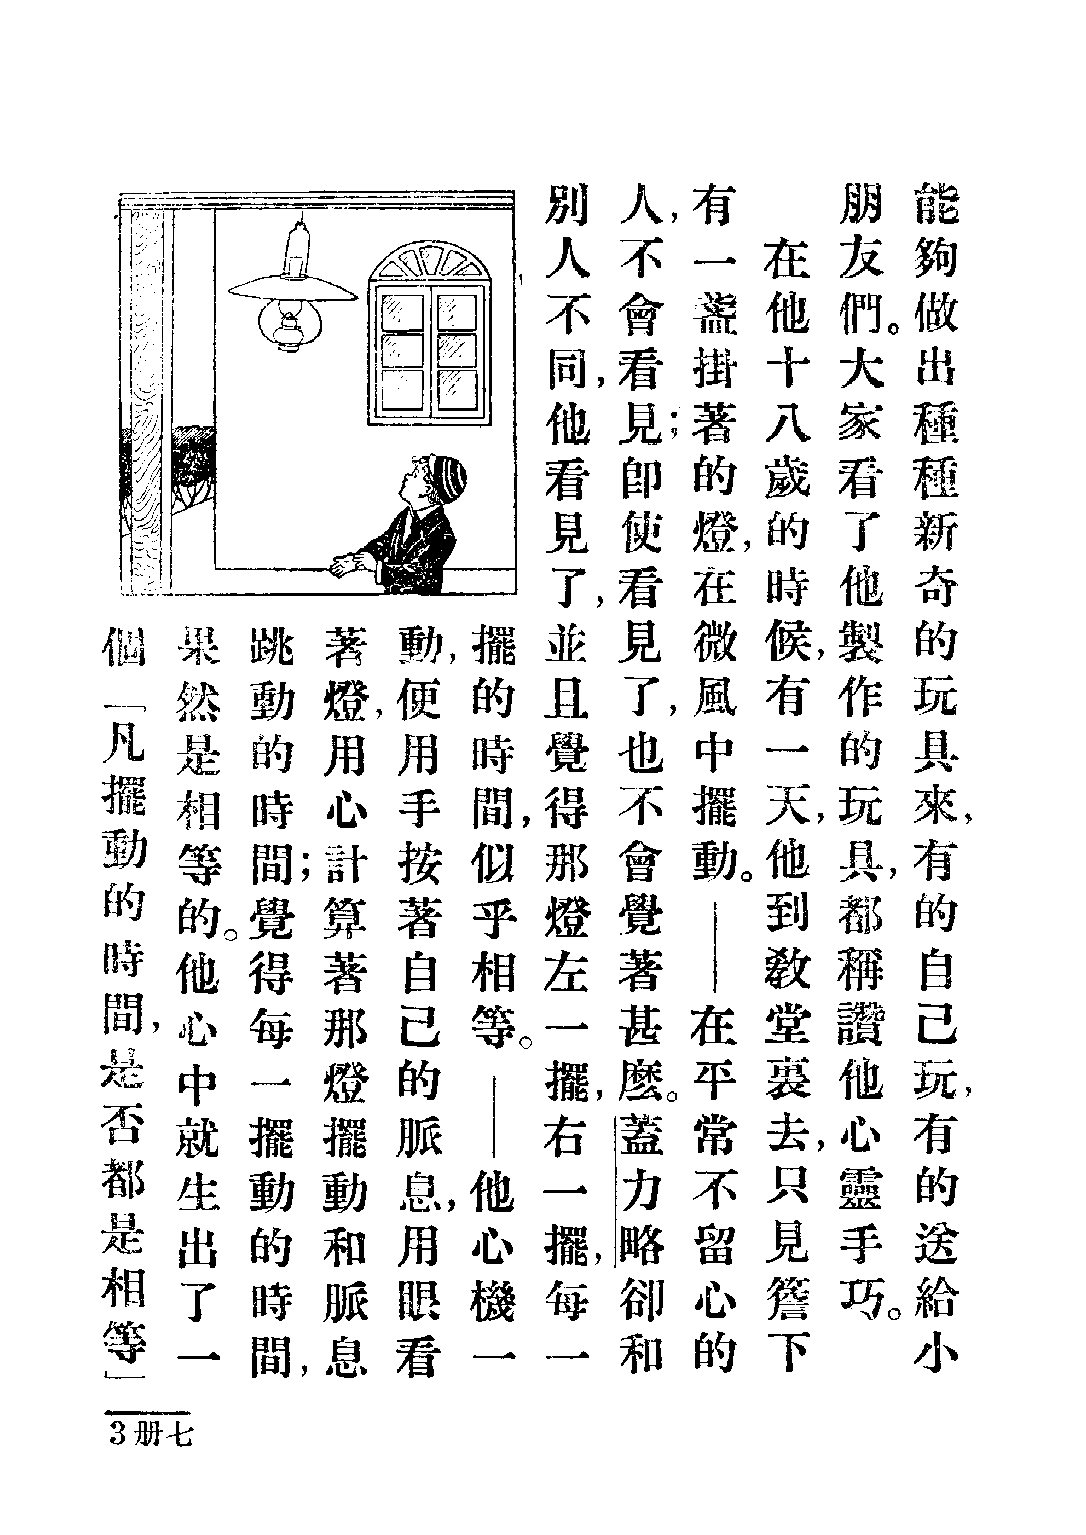 能夠做出種種新奇的玩具來，有的自己玩，有的送給小
朋友們。大家看了他製作的玩具，都稱讚他心靈手巧。
在他十八歲的時候，有一天，他到敎堂裏去，只見簷下
有一盞掛著的燈，在微風中擺動。——在平常不留心的
人，不會看見；卽使看見了，也不會覺著甚麼。蓋力略卻和
別人不同，他看見了，並且覺得那燈左一擺，右一擺，每一
擺的時間，似乎相等。——他心機一
動，便用手按著自己的脈息，用眼看
著燈，用心計算著那燈擺動和脈息
跳動的時間；覺得每一擺動的時間，
果然是相等的。他心中就生出了一
個「凡擺動的時間，是否都是相等」
3册七